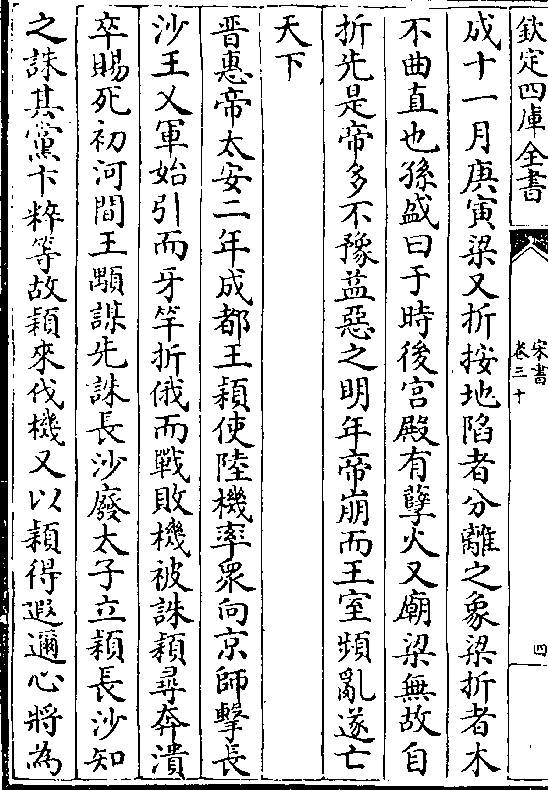 欽定四庫全書
宋書
卷三十
四
成十一月庚寅梁又折按地陷者分離之象梁折者木
不曲直也孫盛曰于時後宮殿有孽火又廟梁無故自
折先是帝多不豫益惡之明年帝崩而王室頻亂遂亡
天下
晋惠帝太安二年成都王穎使陸機率衆向京師擊長
沙王乂軍始引而牙竿折俄而戰敗機被誅穎尋奔潰
卒賜死初河間王顒謀先誅長沙廢太子立穎長沙知
之誅其黨卞粹等故穎來伐機又以穎得遐邇心將為